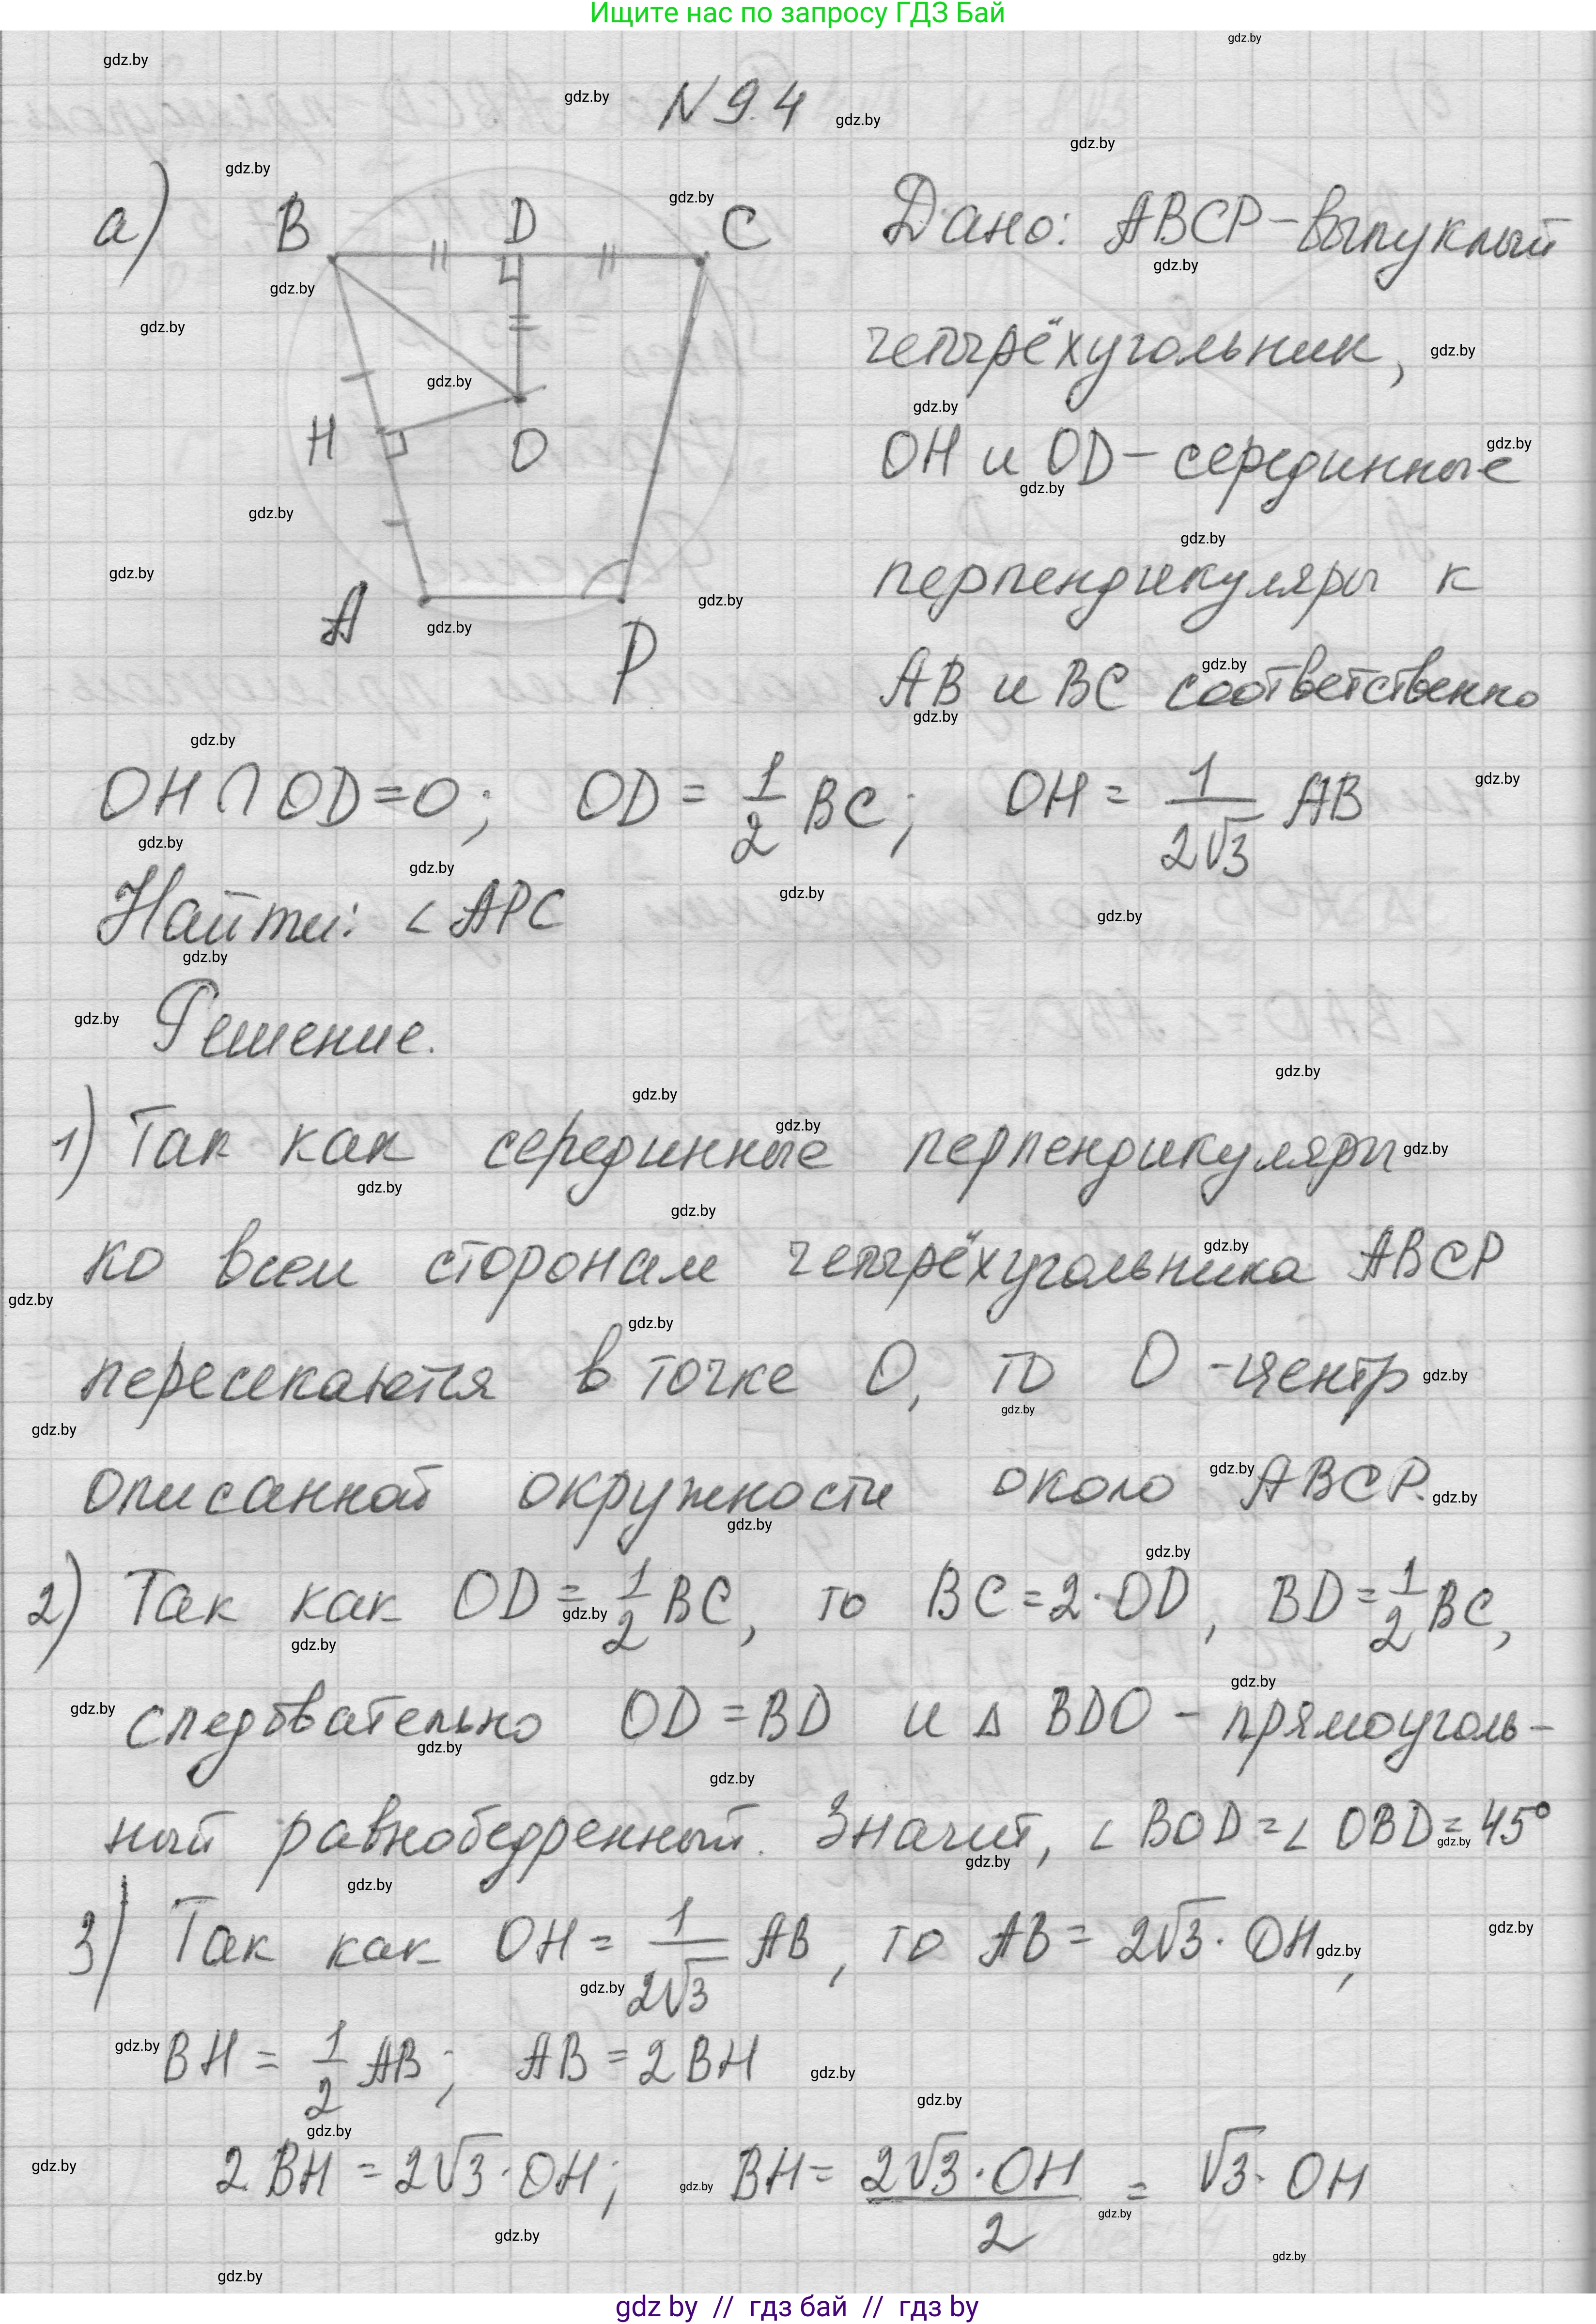 Ищите нас по запросу ГДЗ Бай
N 9.4
а)
B D C
H O
A P
Дано: ABCP – выпуклый
четырёхугольник,
OH и OD – серединные
перпендикуляры к
AB и BC соответственно
OH ∩ OD = O; OD = 1/2 BC; OH = 1/(2√3) AB
Найти: ∠ APC
Решение.
1) Так как серединные перпендикуляры
ко всем сторонам четырёхугольника ABCP
пересекаются в точке O, то O - центр
описанной окружности около ABCP.
2) Так как OD = 1/2 BC, то BC = 2·OD, BD = 1/2 BC,
следовательно OD = BD и △ BDO – прямоуголь-
ный равнобедренный. Значит, ∠ BOD = ∠ OBD = 45°
3) Так как OH = 1/(2√3) AB, то AB = 2√3 · OH,
BH = 1/2 AB; AB = 2 BH
2 BH = 2√3 · OH; BH = (2√3 · OH)/2 = √3 · OH
gdz by // гдз бай // гдз by